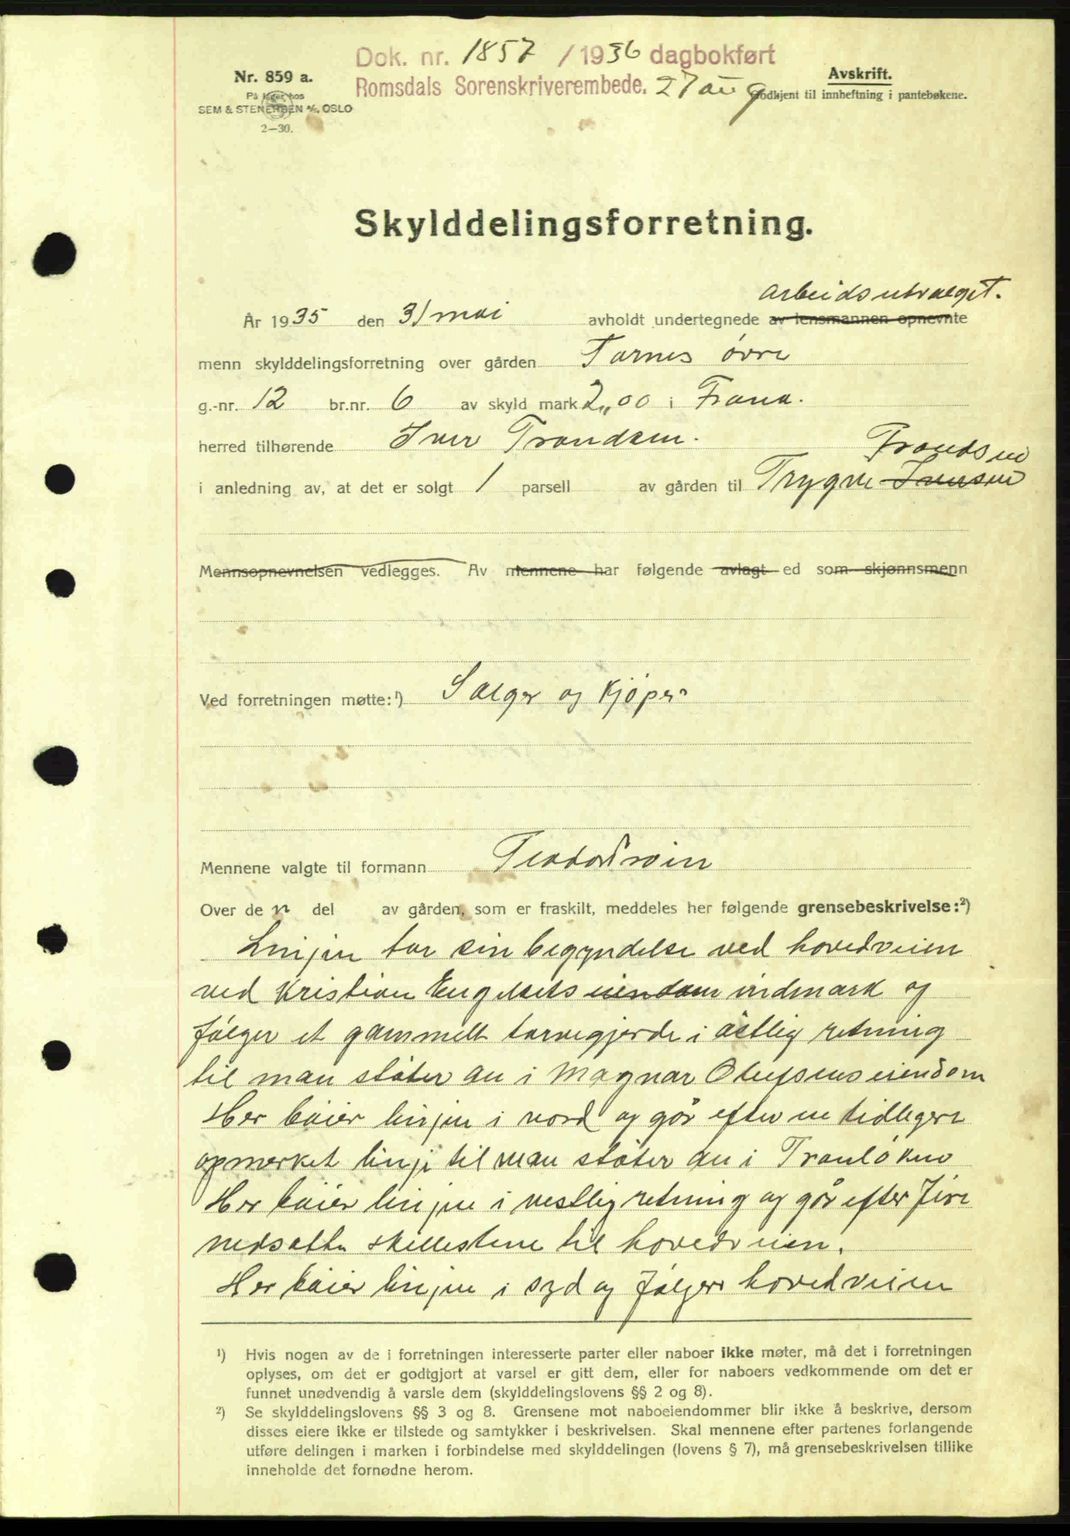 Dok. nr. 1857 / 1936 dagbokført
Romsdals Sorenskriverembede. 27 aug
Nr. 859 a.
På lager hos
SEM & STENERSEN A/S, OSLO
2—30.
Avskrift.
Godkjent til innheftning i pantebøkene.
Skylddelingsforretning.
arbeidsutvalget.
År 1935 den 31 mai avholdt undertegnede av lensmannen opnevnte
menn skylddelingsforretning over gården Tornes øvre
g.-nr. 12 br.nr. 6 av skyld mark 2,00 i Fræna.
herred tilhørende Iver Trondsen.
Trondsen
i anledning av, at det er solgt 1 parsell av gården til Trygve Iversen
Mennsopnevnelsen vedlegges. Av mennene har følgende avlagt ed som skjønnsmenn
Ved forretningen møtte:¹) Sælger og kjøper
Mennene valgte til formann
Over den del av gården, som er fraskilt, meddeles her følgende grensebeskrivelse:²)
Linjen tar sin begyndelse ved hovedveien
ved Kristian Engelsets eiendom indmark og
følger et gammelt torvegjerde i østlig retning
til man støter an i Magnar Olufsens eiendom
Her bøier linjen i nord og går efter en tidligere
opmerket linje til man støter an i
Her bøier linjen i vestlig retning og går efter fire
nedsatte skillestene til hovedveien.
Her bøier linjen i syd og følger hovedveien
¹) Hvis nogen av de i forretningen interesserte parter eller naboer ikke møter, må det i forretningen
oplyses, om det er godtgjort at varsel er gitt dem, eller for naboers vedkommende om det er
funnet unødvendig å varsle dem (skylddelingslovens §§ 2 og 8).
²) Se skylddelingslovens §§ 3 og 8. Grensene mot naboeiendommer blir ikke å beskrive, dersom
disses eiere ikke er tilstede og samtykker i beskrivelsen. Skal mennene efter partenes forlangende
utføre delingen i marken i forbindelse med skylddelingen (lovens § 7), må grensebeskrivelsen tillike
inneholde det fornødne herom.